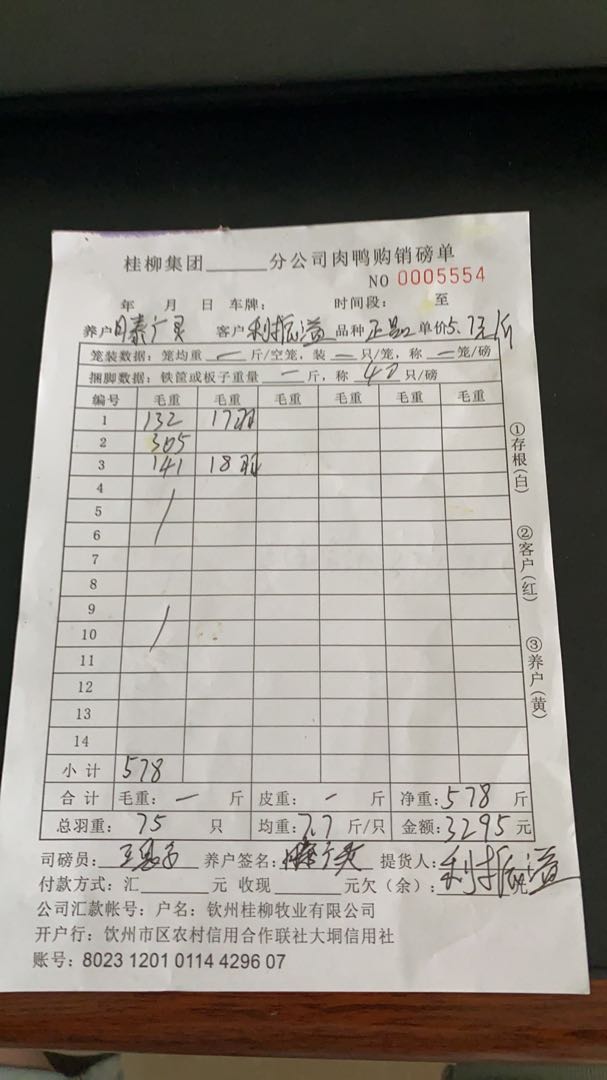 桂柳集团______分公司肉鸭购销磅单
NO 0005554
年 月 日 车牌： 时间段： 至
养户 客户 利振溢 品种 正品 单价5.7元/斤
笼装数据：笼均重 — 斤/空笼，装 — 只/笼，称 — 笼/磅
捆脚数据：铁筐或板子重量 — 斤，称 40 只/磅
编号 毛重 毛重 毛重 毛重 毛重 毛重
1 132 17羽
2 305
3 141 18羽
4
5
6
7
8
9
10
11
12
13
14
小计 578
合计 毛重：— 斤 皮重：— 斤 净重：578 斤
总羽重：75 只 均重：7.7 斤/只 金额：3295 元
司磅员： 养户签名： 提货人：利振溢
付款方式：汇______元 收现______元欠（余）：
公司汇款帐号：户名：钦州桂柳牧业有限公司
开户行：钦州市区农村信用合作联社大垌信用社
账号：8023 1201 0114 4296 07
①存根(白)
②客户(红)
③养户(黄)